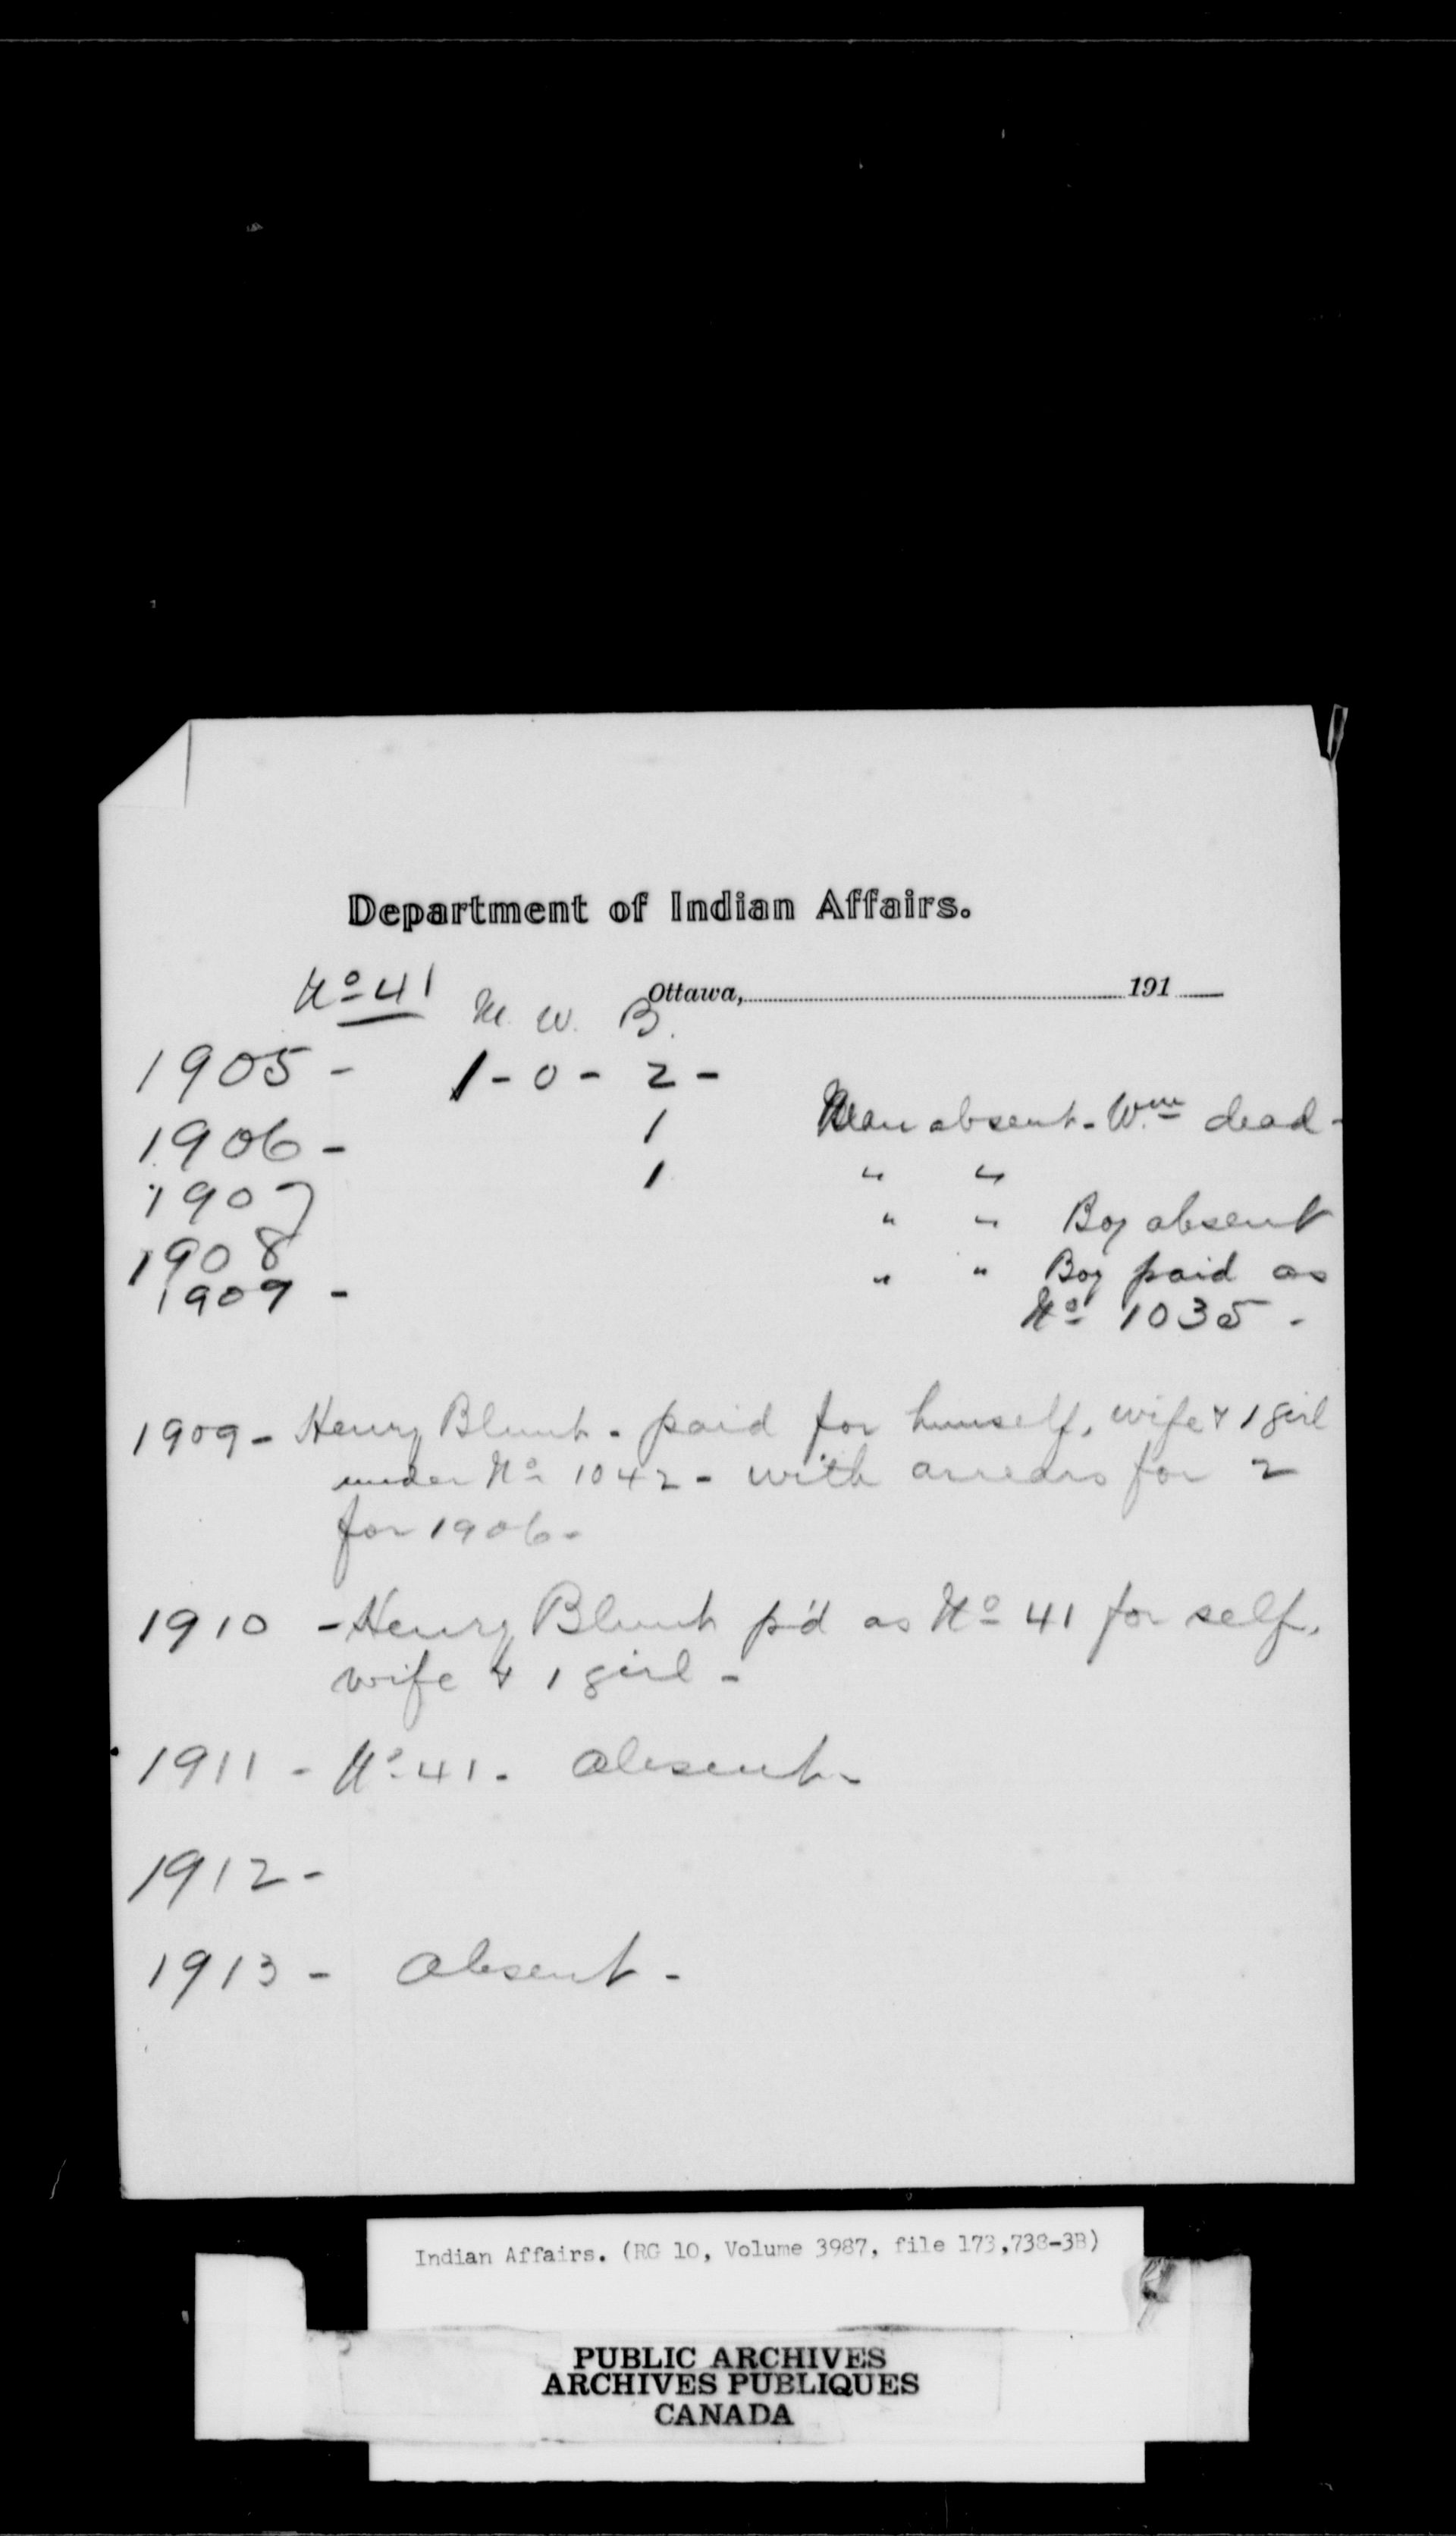 Department of Indian Affairs.
No 41
Ottawa, 191
M. W. B.
1905 - 1 - 0 - 2 -
1906 - 1 Man absent - Wm dead -
1907 1 " "
1908 " " Boy absent
1909 - " " Boy paid as
No 1035 -
1909 - Henry Blunt - paid for himself, wife & 1 girl
under No 1042 - with arrears for 2
for 1906 -
1910 - Henry Blunt p'd as No 41 for self,
wife & 1 girl -
1911 - No 41 - Absent -
1912 -
1913 - Absent -
Indian Affairs. (RG 10, Volume 3987, file 173,738-3B)
PUBLIC ARCHIVES
ARCHIVES PUBLIQUES
CANADA